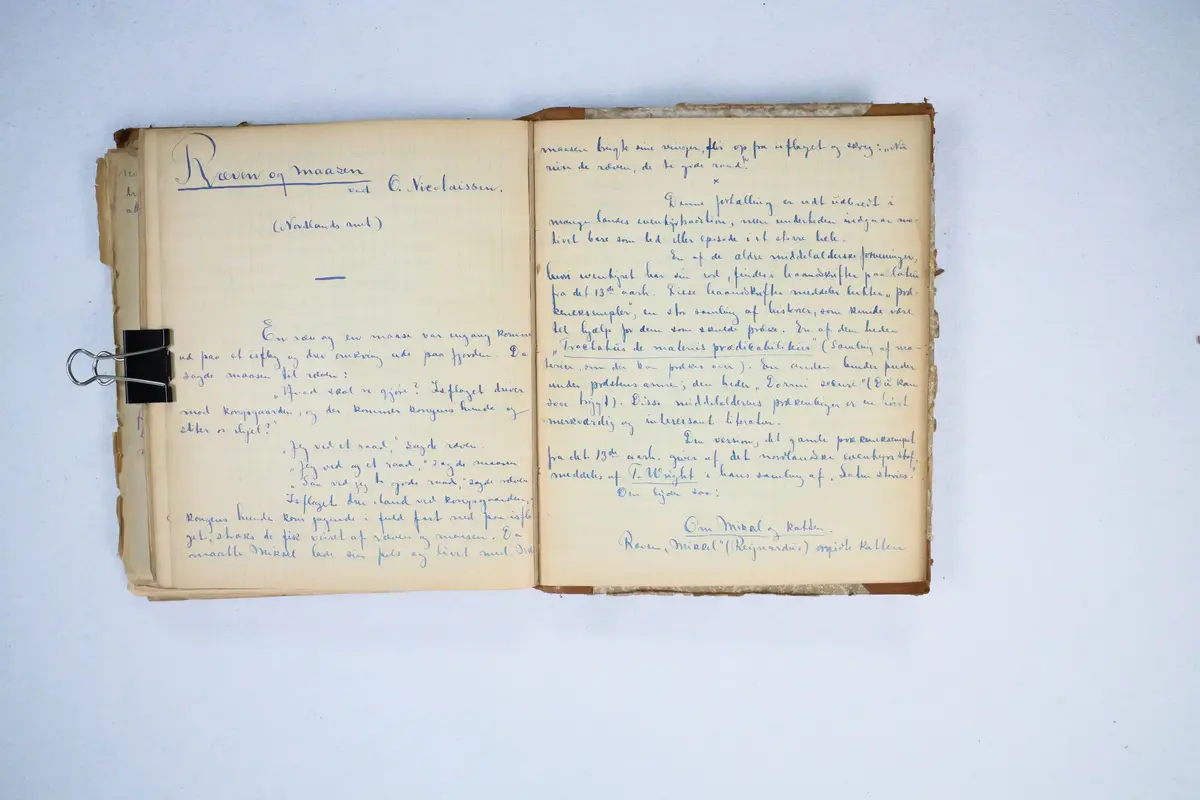 Ræven og maasen
ved O. Nicolaissen.
(Nordlands amt)
En ræv og en maase var engang kommen
ud paa et isflag og drev omkring ude paa fjorden. Da
sagde maasen til ræven:
"Hvad skal vi gjøre? Isflaget driver
mod kongsgaarden, og der kommer kongens hunde og
sliter os ihjel?"
"Jeg ved et raad," sagde ræven.
"Jeg ved og et raad," sagde maasen
"Saa ved jeg to gode raad," sagde ræven
Isflaget drev i land ved kongsgaarden,
kongens hunde kom jagende i fuld fart ned paa isfla-
get, straks de fik veiret af ræven og maasen. Da
maatte Mikkel lade sin pels og livet med. Da
maasen brugte sine vinger, fløi op fra isflaget og skreg: "Nu
ræven, de to gode raad."
x
Denne fortælling er vidt udbredt i
mange landes eventyrtradition, men undertiden indgaar mo-
tivet bare som led eller episode i et større hele.
En af de ældre middelalderske formninger,
hvori eventyret har sin rod, findes i haandskrifter paa latin
fra det 13de aarh. Disse haandskrifter meddeler rækker "præ-
kenexempler", en stor samling af historier, som kunde være
til hjælp for dem som skulde præke. En af dem heder
"Tractatus de materiis prædicabilibus" (Samling af ma-
terier, om der kan prækes over). En anden
under prædikens; den heder "Dormi secure" (Du kan
sove trygt). Disse middelalderens prækenbøger er en høist
merkværdig og interessant literatur.
Den version, det gamle prækenexempel
fra det 13de aarh. giver af det nordlandske eventyrs stof,
meddeles af T. Wright i hans samling af "Latin stories."
Den lyder saa:
Om Mikkel og katten.
Ræven "Mikkel" (Reignardus) mødte katten